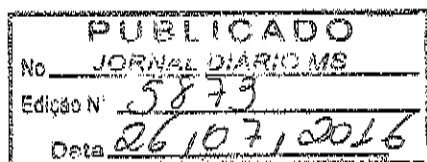 PUBLICADO
No JORNAL DIÁRIO MS
Edição Nº 5873
Data 26/07/2016